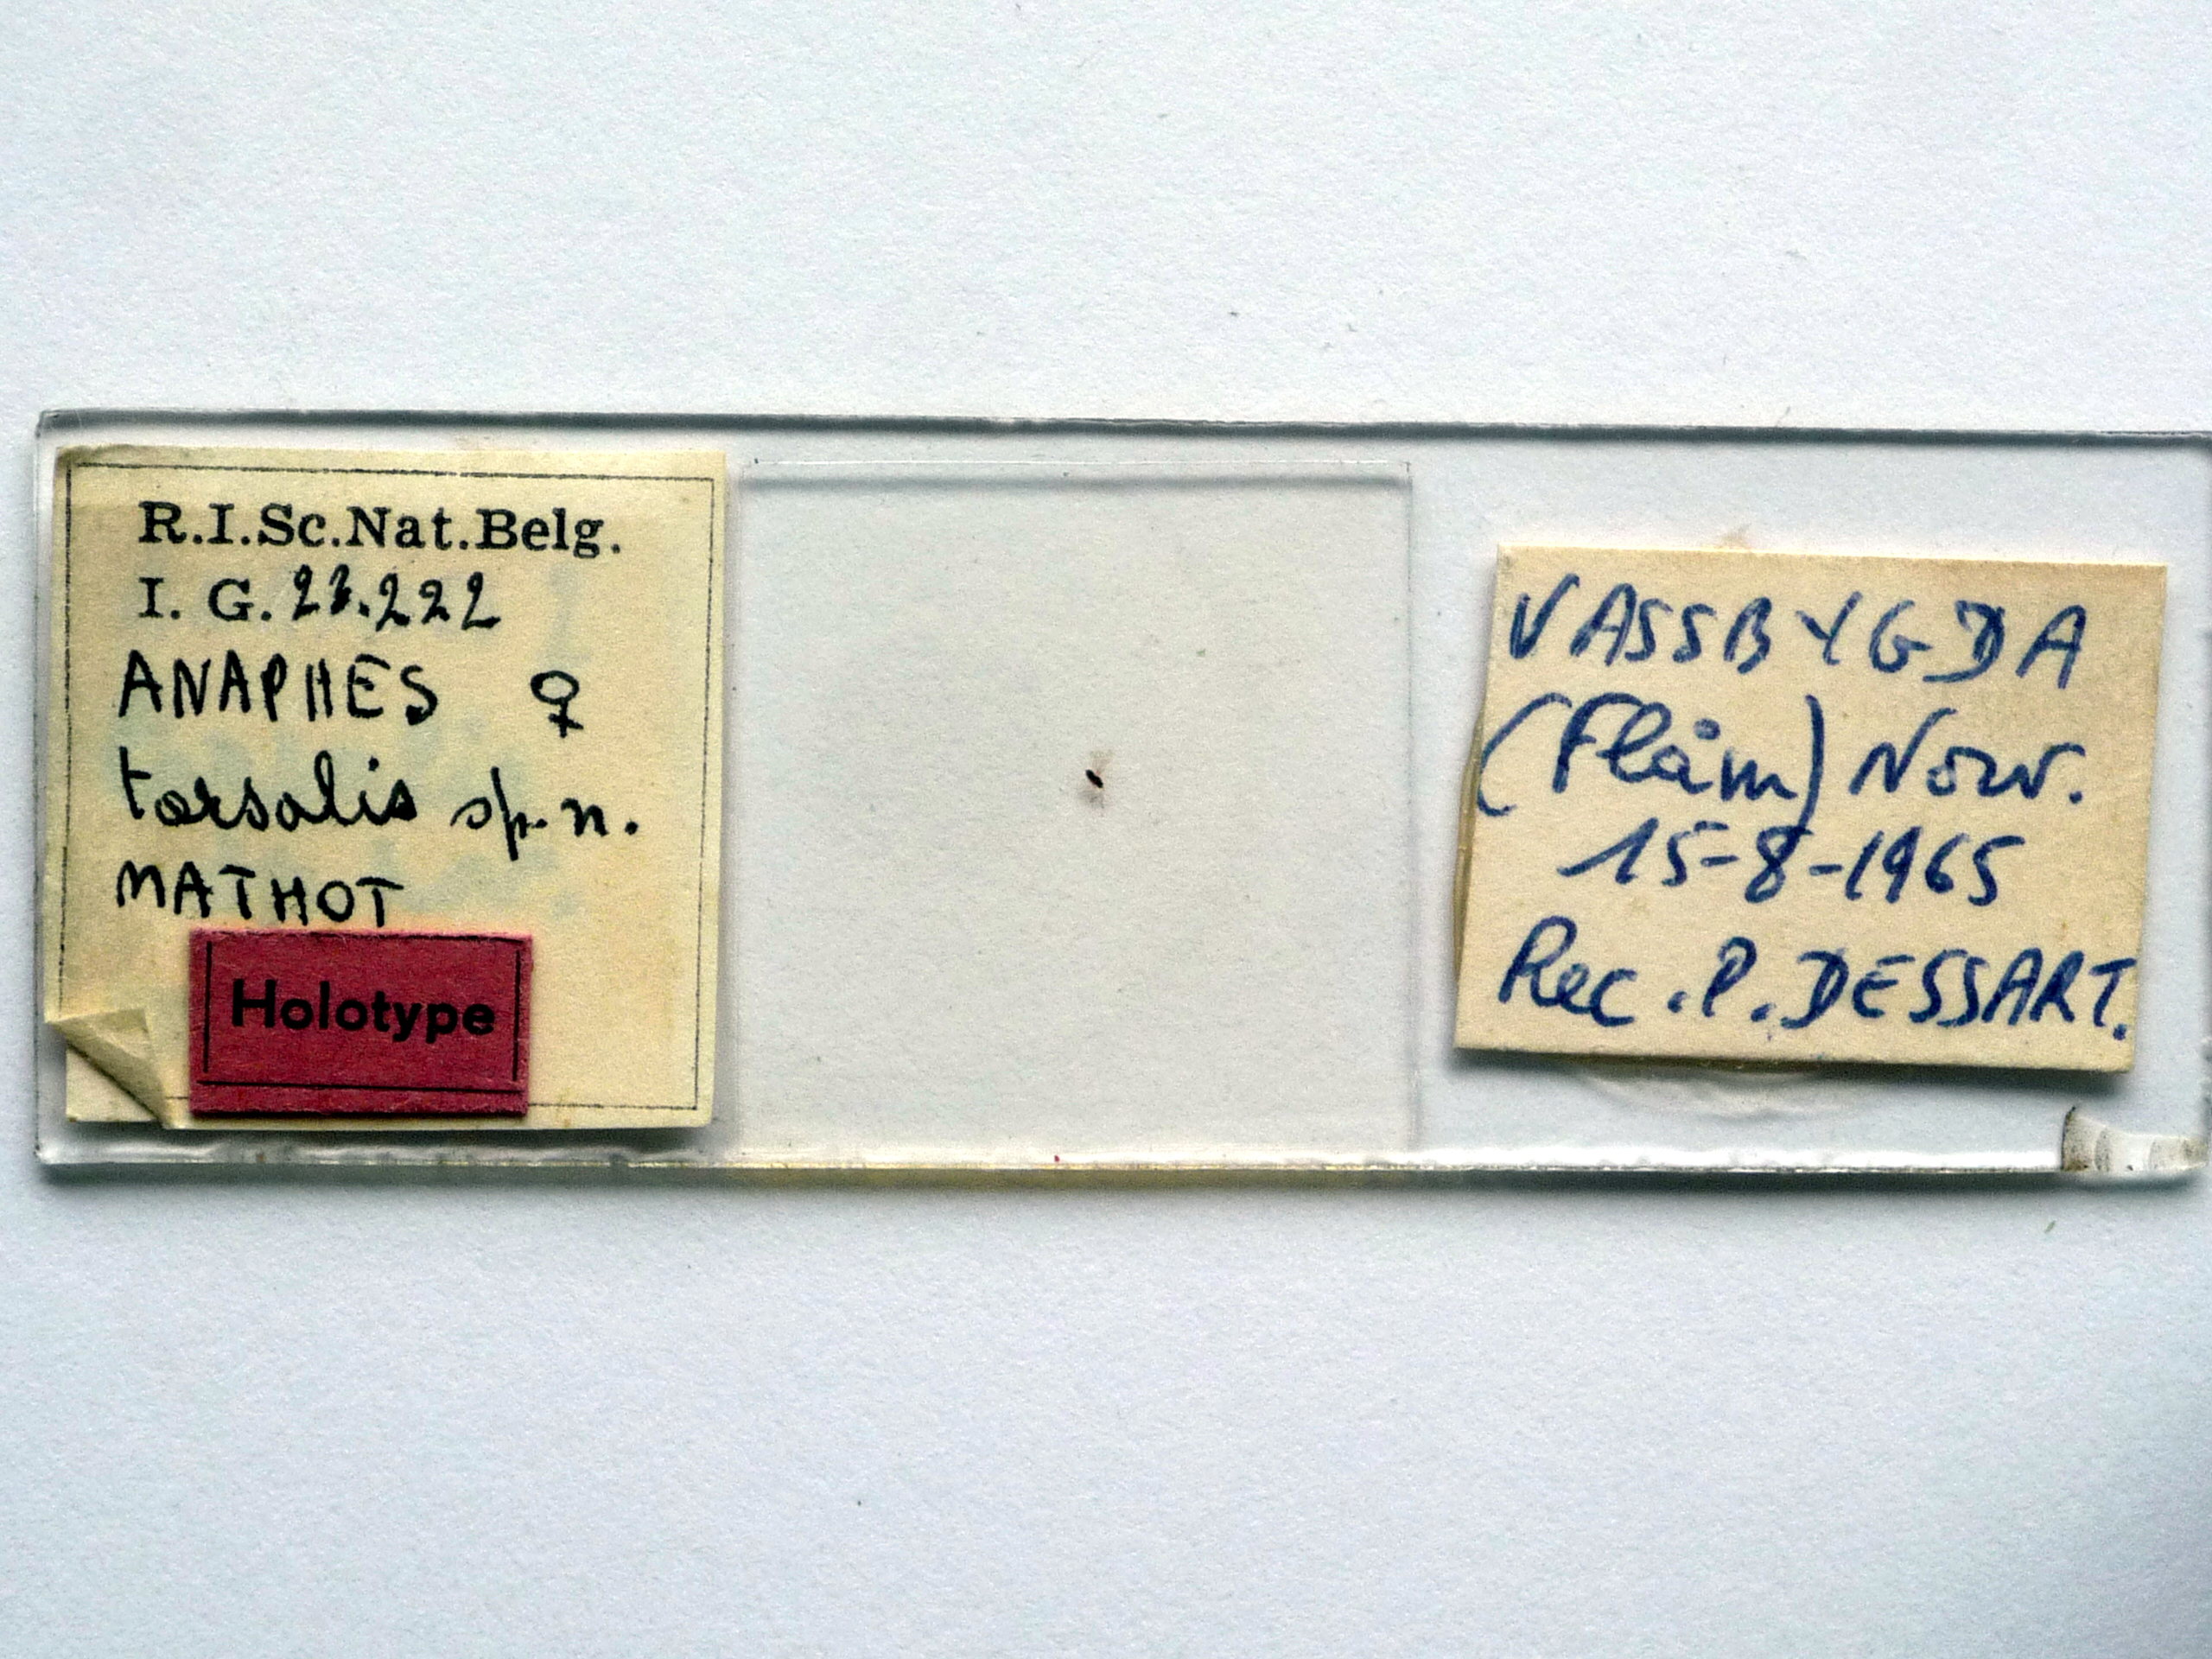 R.I.Sc.Nat.Belg.
I. G. 23.222
ANAPHES ♀
tarsalis sp. n.
MATHOT
Holotype
VASSBYGDA
(Flåm) Norv.
15-8-1965
Rec. P. DESSART.